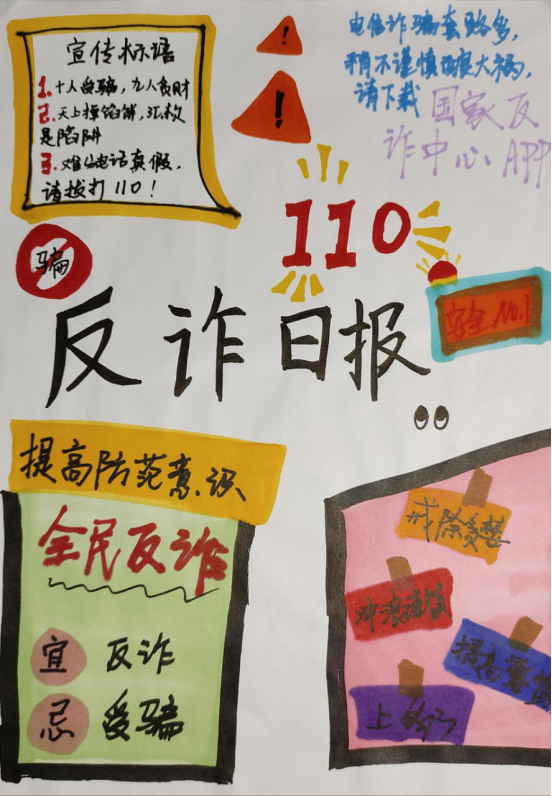 宣传标语
1.十人受骗，九人贪财
2.天上掉馅饼，汇款
是陷阱
3.难分电话真假，
请拨打110！
电信诈骗套路多，
稍不谨慎酿大祸，
请下载
国家反
诈中心APP
骗
110
安全No.1
反诈日报
提高防范意识
全民反诈
宜 反诈
忌 受骗
戒除贪婪
提高警